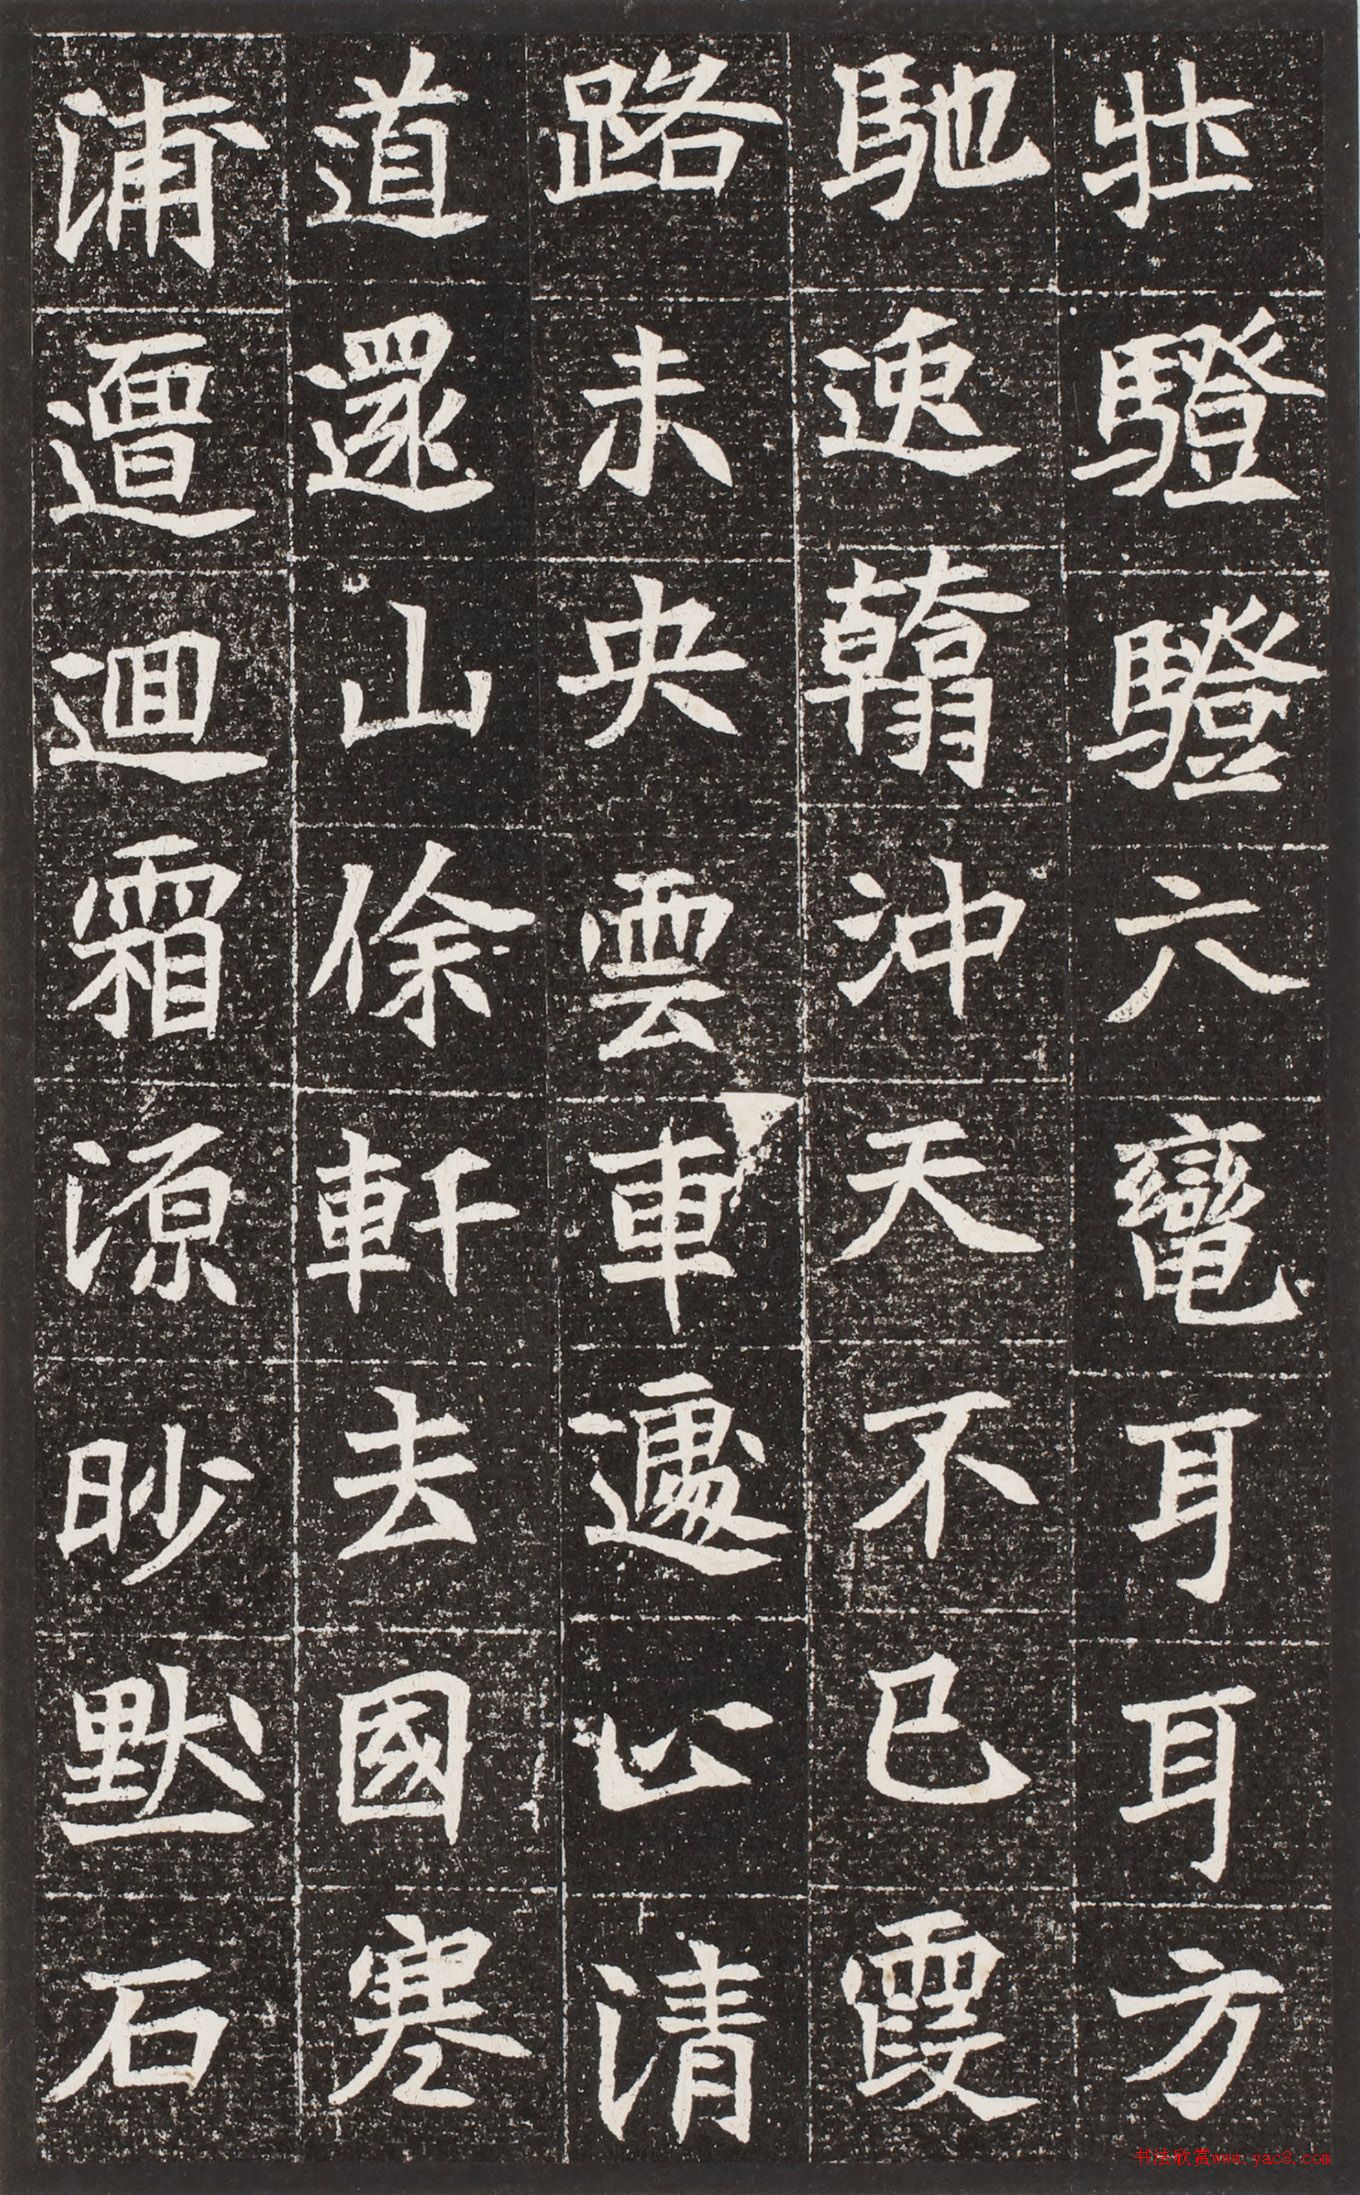 壯䮴䮴六轡耳耳方
馳速翰沖天不已霞
路未央雲車遽心清
道還山徐軒去國寒
浦邅迴霜源眇默石
书法欣赏www.yac8.com